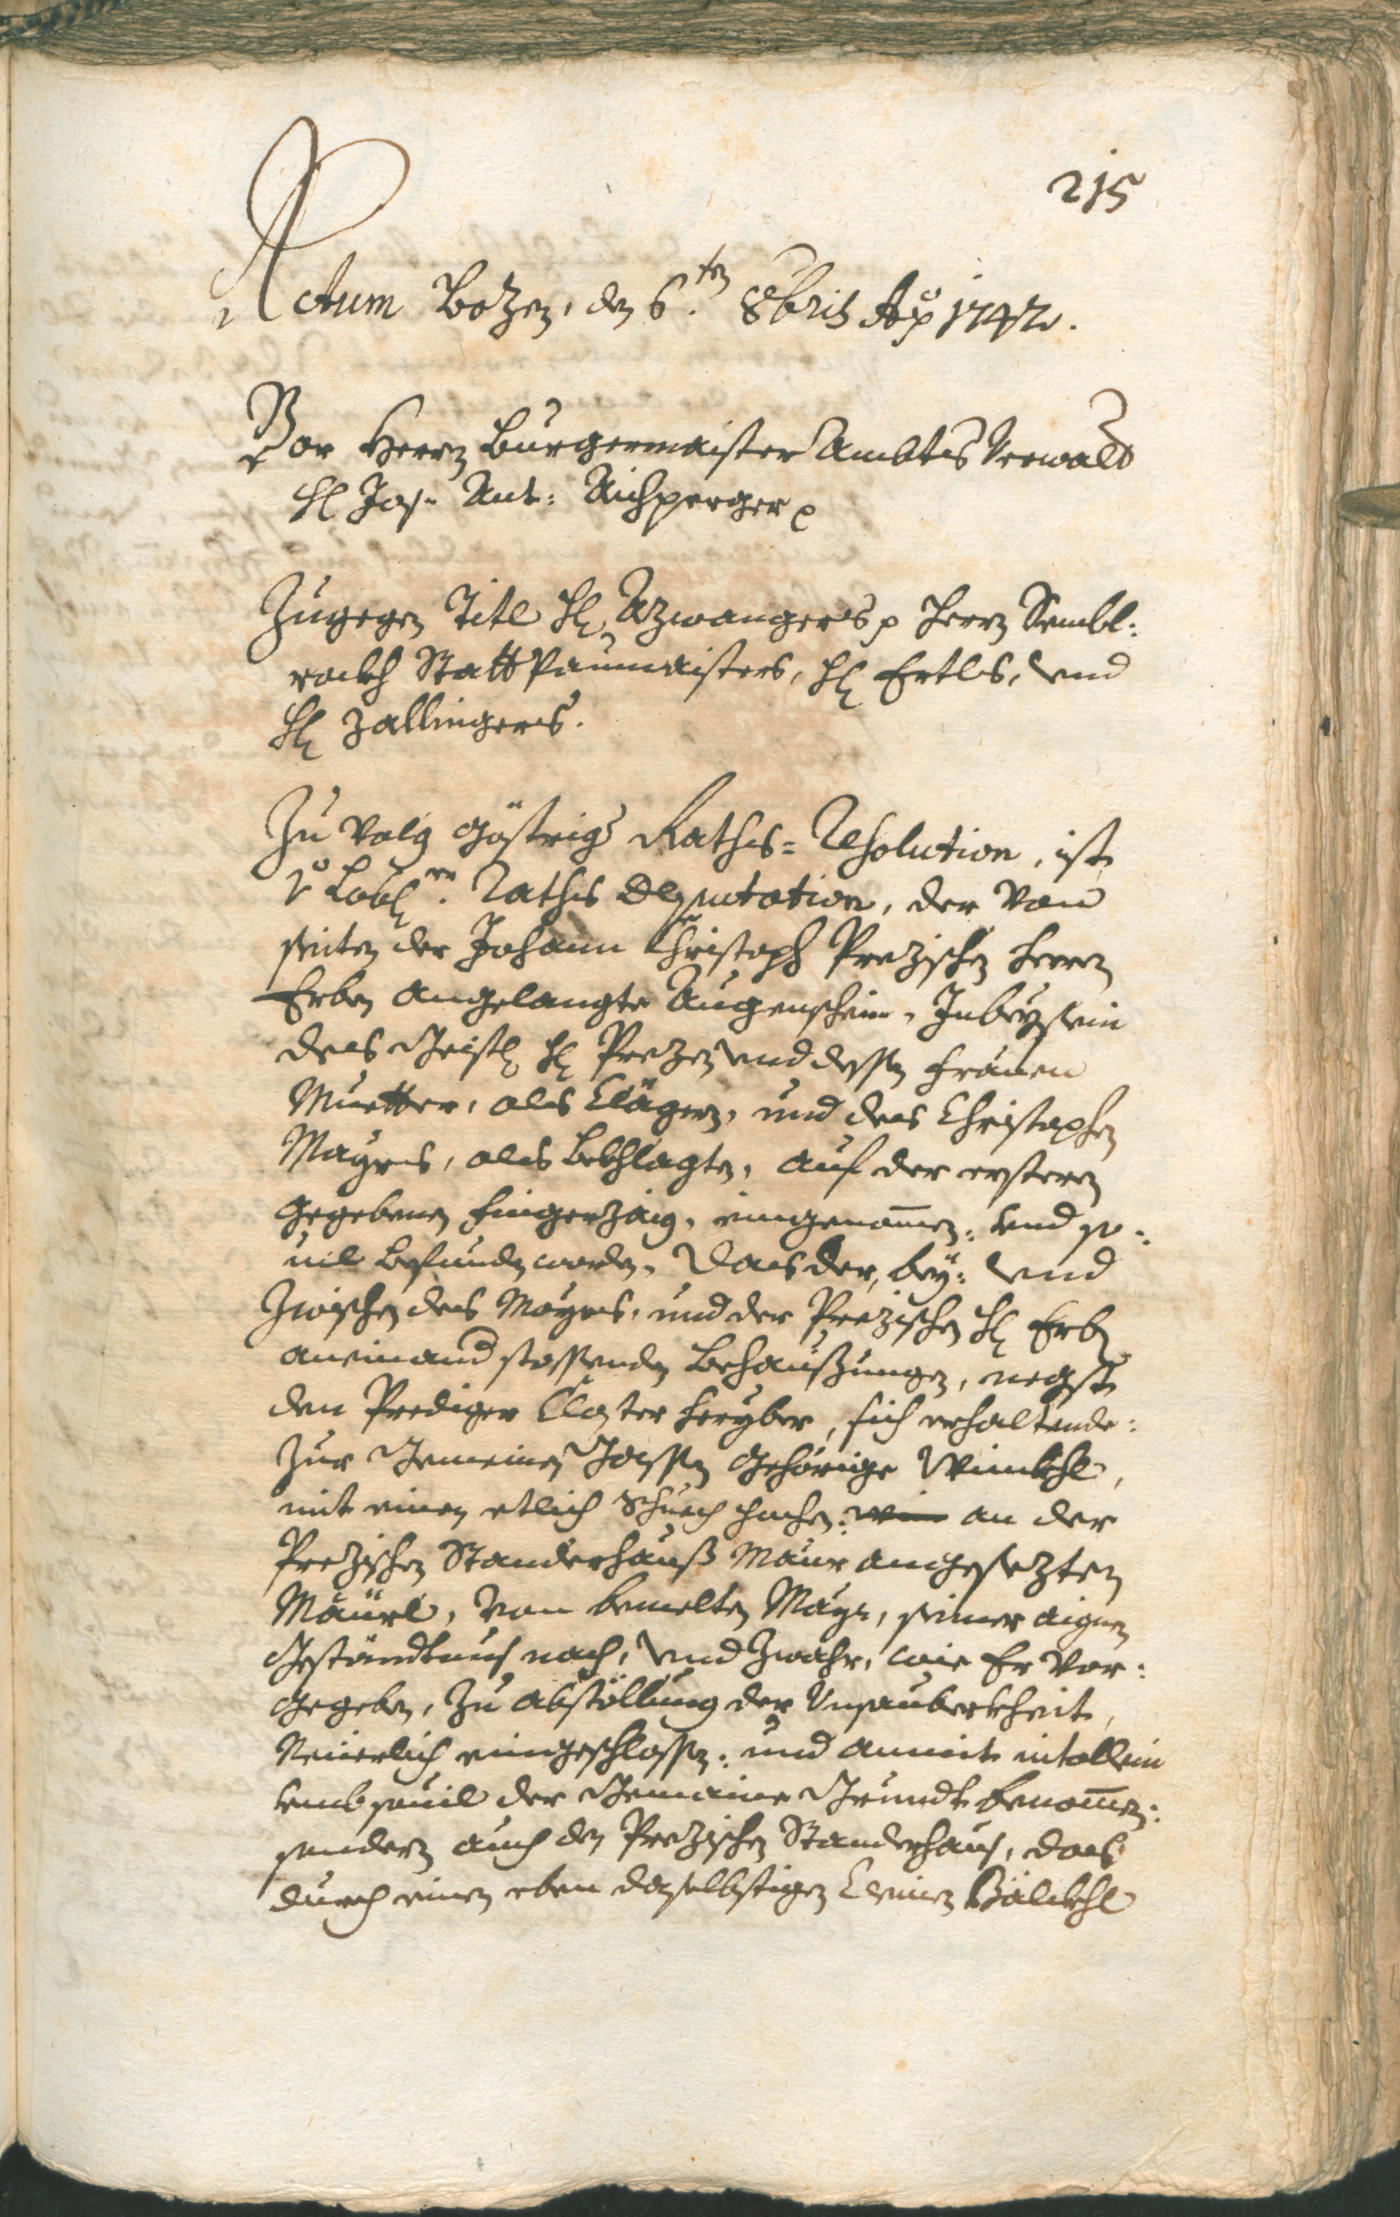 215
Actum Bozen, den 6.ten 8bris Ao 1742.
Vor Herrn Burgermaister Ambts Verwald
H Jos. Ant: Aichperger
Zugegen Titl H Azwangers Herrn Sembl:
rockh Statt Paumaisters, H Ertls, vnd
H Zallingers.
Zu volg gästrig Raths=Resolution, ist
Lobl Raths Deputation, der von
seiten der Johann Christoph Prezischen Herrn
Erben angelangte Augenschein, Inbeysein
des H Prezen vnd dessen frauen
Muetter, als Clägern, und des Christophen
Mayrs, als beklagten, auf der ersteren
gegebenen fingerzaig, eingenommen, und so=
uil befunden worden, Das der, bey: vnd
zwischen des Mayrs, und der Prezischen H Erben
aneinand stossenden Behaußungen, negst
den Prediger Closter heryber, sich erhaltende:
zur Gemeinen Gassen gehörige Winkhl,
mit einen etlich Schuech hochen: an der
Prezischen Standerhauß Maur angesezten
Mäurl, von bemelten Mayr, seiner aignen
Geständtnus nach, vnd zwahr, wie Er vor:
gegeben, zu abstöllung der Unsauberkheit,
Neuerlich eingeschlossen: und annit nitallein
umb souil der Gemaine Grundt benommen:
sondern auch den Prezischen Standerhaus, das
durch einen eben daselbstigen Cleinen Bälckhl